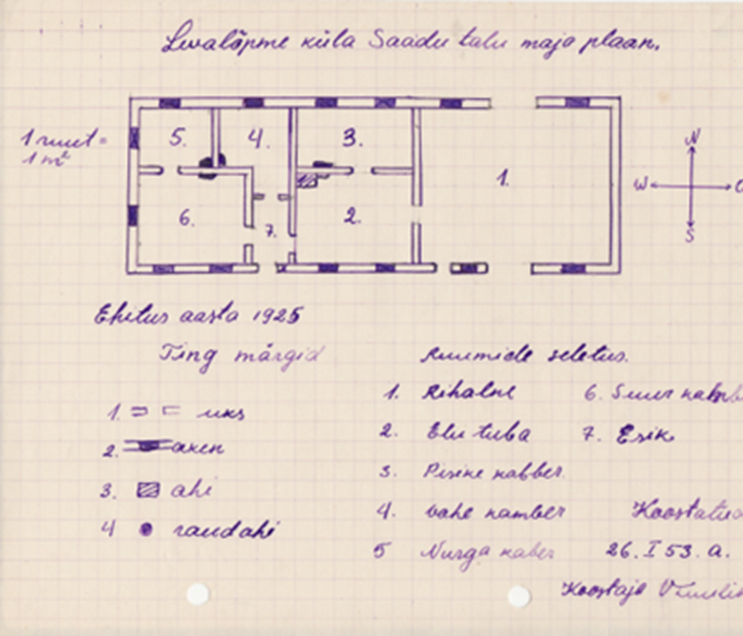 Levalõpme küla Saadu talu maja plaan.
1 ruut =
1 m²
5. 4. 3. 1. 6. 7. 2.
N
W O
S
Ehitus aasta 1925
Ting märgid
1. uks
2. aken
3. ahi
4 raudahi
Ruumide seletus.
1. Rihalne
2. Elu tuba
3. Pisike kabber
4. Vahe kamber
5 Nurga kaber
6. Suur
7. Esik
26. I 53. a.
Koostaja